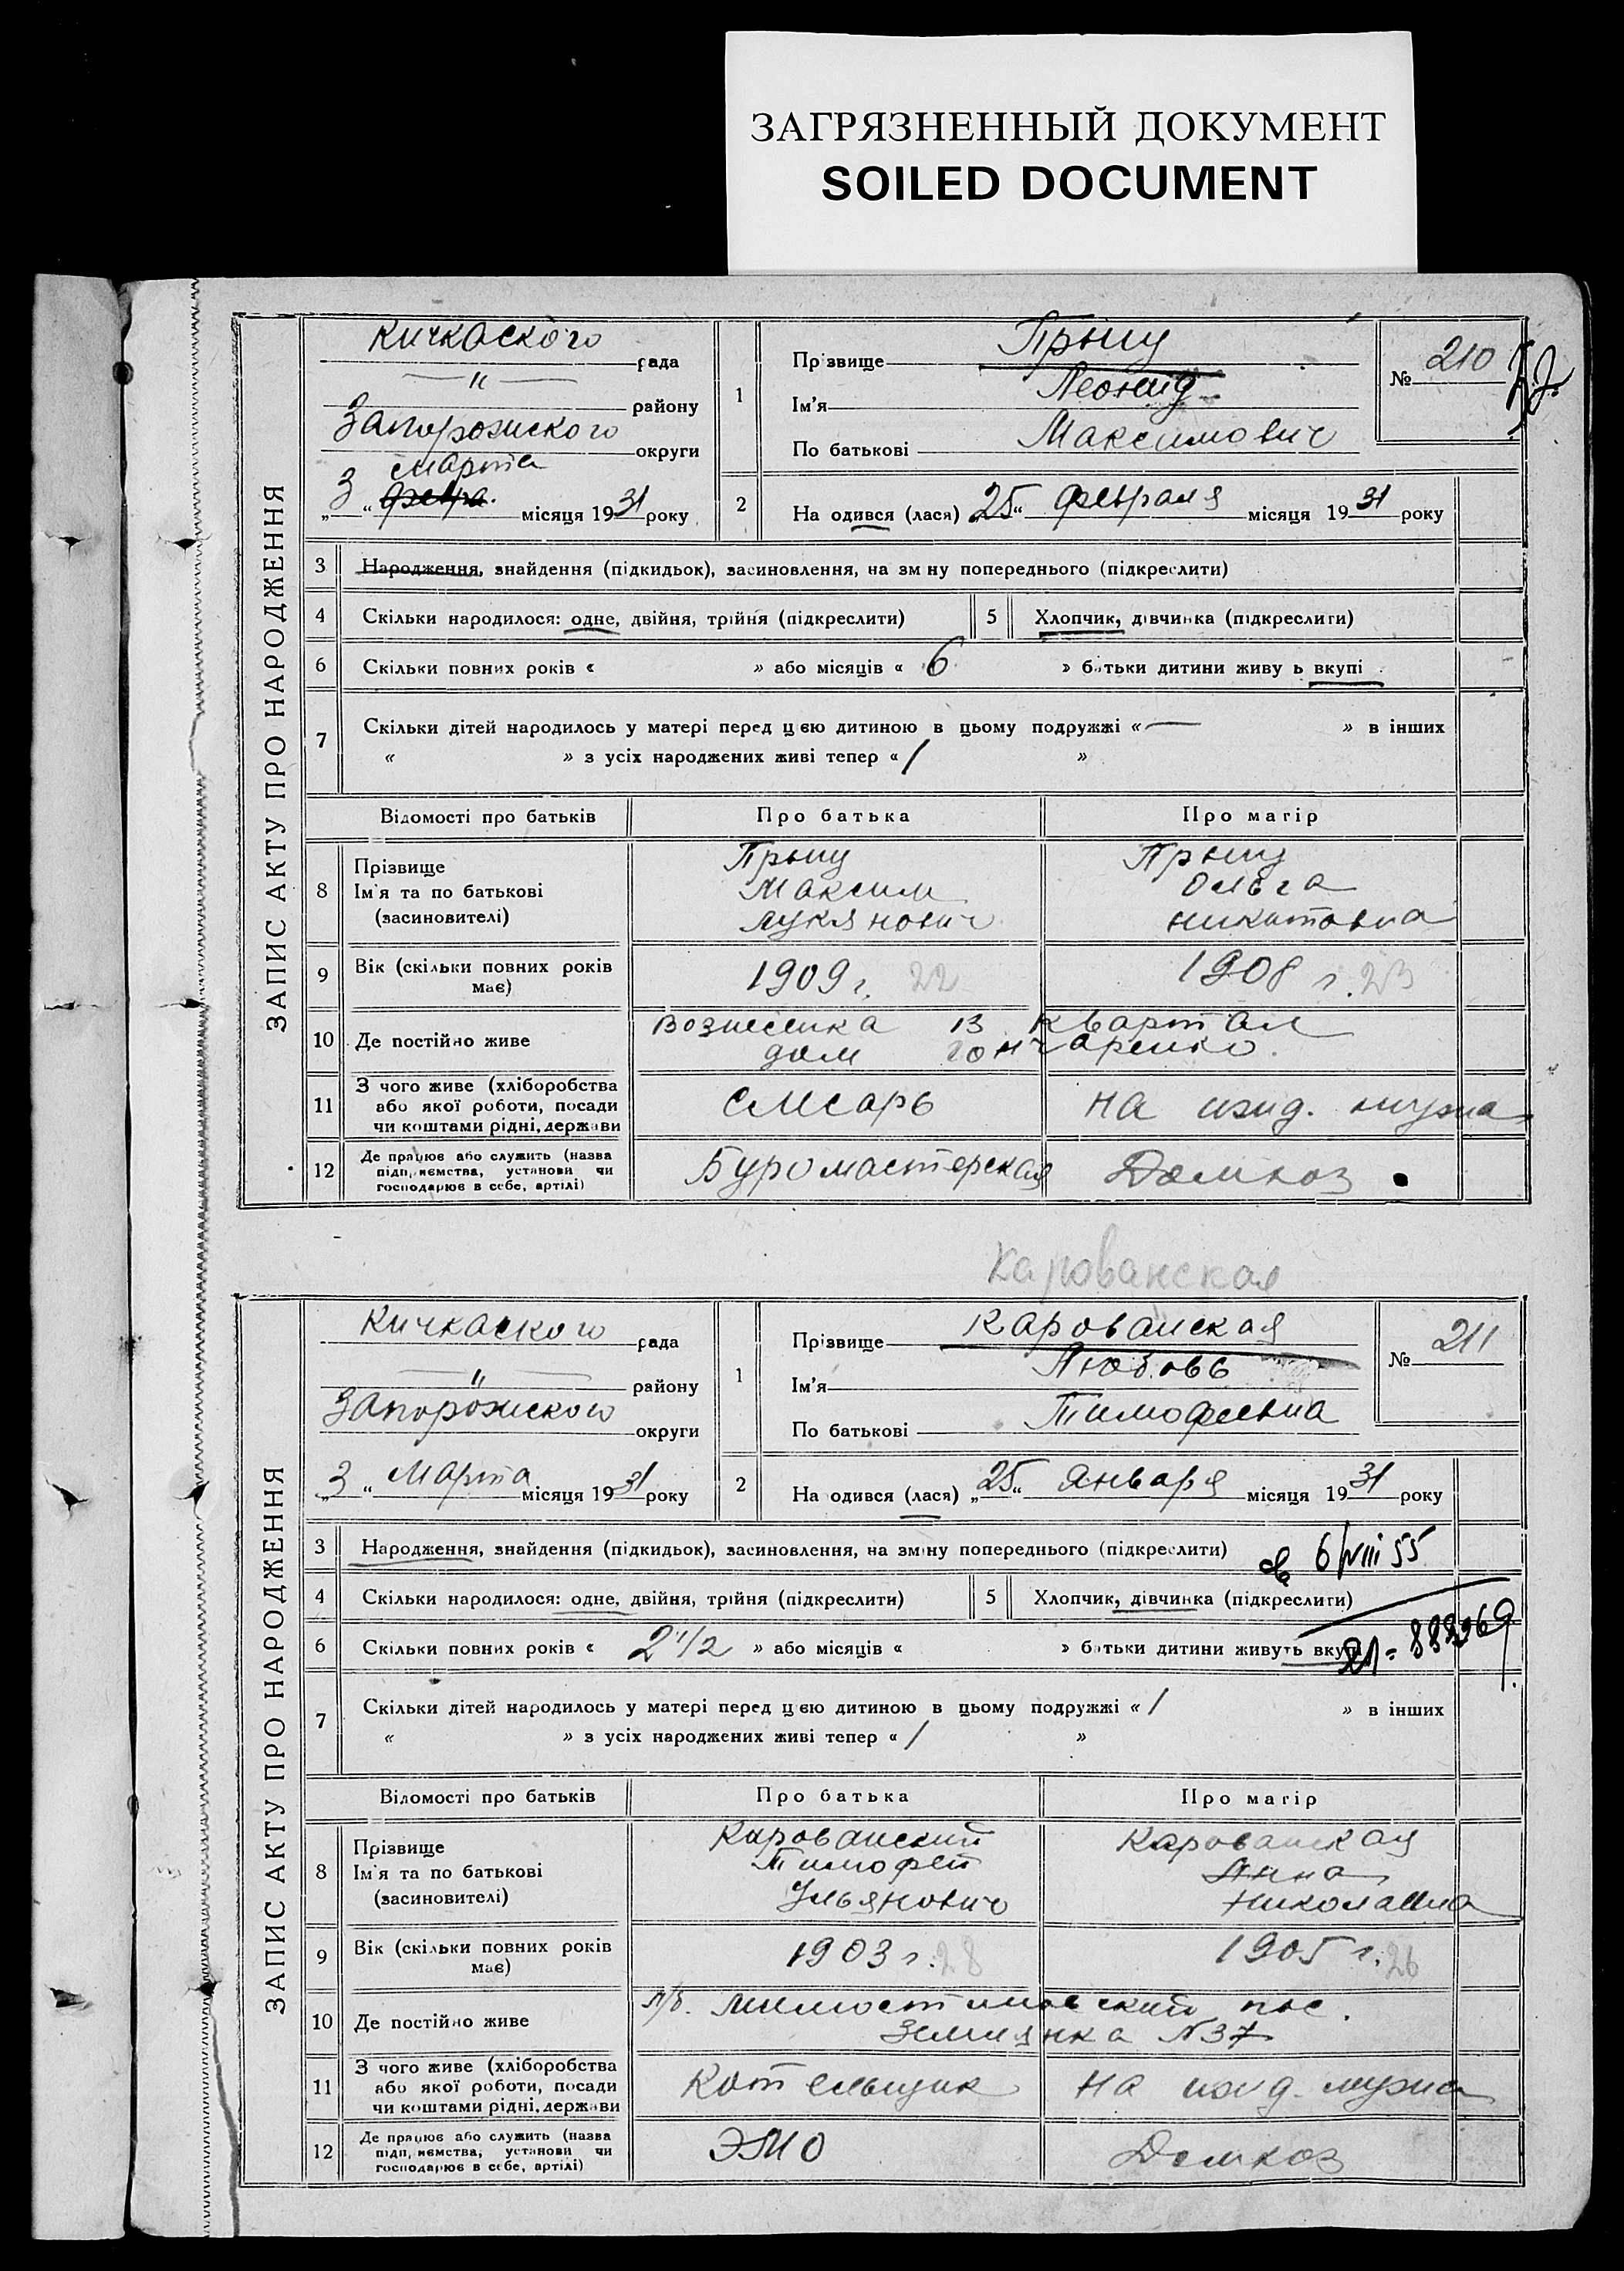 ЗАГРЯЗНЕННЫЙ ДОКУМЕНТ
SOILED DOCUMENT
ЗАПИС АКТУ ПРО НАРОДЖЕННЯ
Кичкаского рада
—"— району
Запорожского округи
марта
„3“ февра. місяця 1931 року
1
Прізвище
Ім'я Леонид
По батькові Максимович
№ 210
2
На одився (лася) „25“ февраля місяця 1931 року
3 Народження, знайдення (підкидьок), засиновлення, на зм ну попереднього (підкреслити)
4 Скільки народилося: одне, двійня, трійня (підкреслити) 5 Хлопчик, дівчинка (підкреслити)
6 Скільки повних років « » або місяців « 6 » батьки дитини живу ь вкупі
7 Скільки дітей народилось у матері перед цією дитиною в цьому подружжі « — » в інших
« » з усіх народжених живі тепер « / »
Відомості про батьків Про батька Про матір
8 Прізвище
Ім'я та по батькові Максим Ольга
(засиновителі) Лукянович Никитовна
9 Вік (скільки повних років має) 1909 г. 22 1908 г. 23
10 Де постійно живе Вознесенка 13 квартал
дом Гончаренко.
11 З чого живе (хліборобства
або якої роботи, посади
чи коштами рідні, держави Слесарь на ижд. мужа
12 Де працює або служить (назва
підприємства, установи чи
господарює в себе, артілі) Буромастерская Домхоз
Карованская
ЗАПИС АКТУ ПРО НАРОДЖЕННЯ
Кичкаского рада
—"— району
Запорожского округи
„3“ Марта місяця 1931 року
1
Прізвище Карованская
Ім'я Любовь
По батькові Тимофеевна
№ 211
2
На одився (лася) „25“ января місяця 1931 року
3 Народження, знайдення (підкидьок), засиновлення, на зміну попереднього (підкреслити)
6/VIII 55
4 Скільки народилося: одне, двійня, трійня (підкреслити) 5 Хлопчик, дівчинка (підкреслити)
6 Скільки повних років « 2 1/2 » або місяців « » батьки дитини живуть вкупі
7 Скільки дітей народилось у матері перед цією дитиною в цьому подружжі « / » в інших
« » з усіх народжених живі тепер « / »
Відомості про батьків Про батька Про матір
8 Прізвище Карованский Карованская
Ім'я та по батькові Тимофей Анна
(засиновителі) Ульянович Николаевна
9 Вік (скільки повних років має) 1903 г. 28 1905 г. 26
10 Де постійно живе пос.
Землянка N 37
11 З чого живе (хліборобства
або якої роботи, посади
чи коштами рідні, держави Котельщик на ижд. мужа
12 Де працює або служить (назва
підприємства, установи чи
господарює в себе, артілі) ЭМО Домхоз